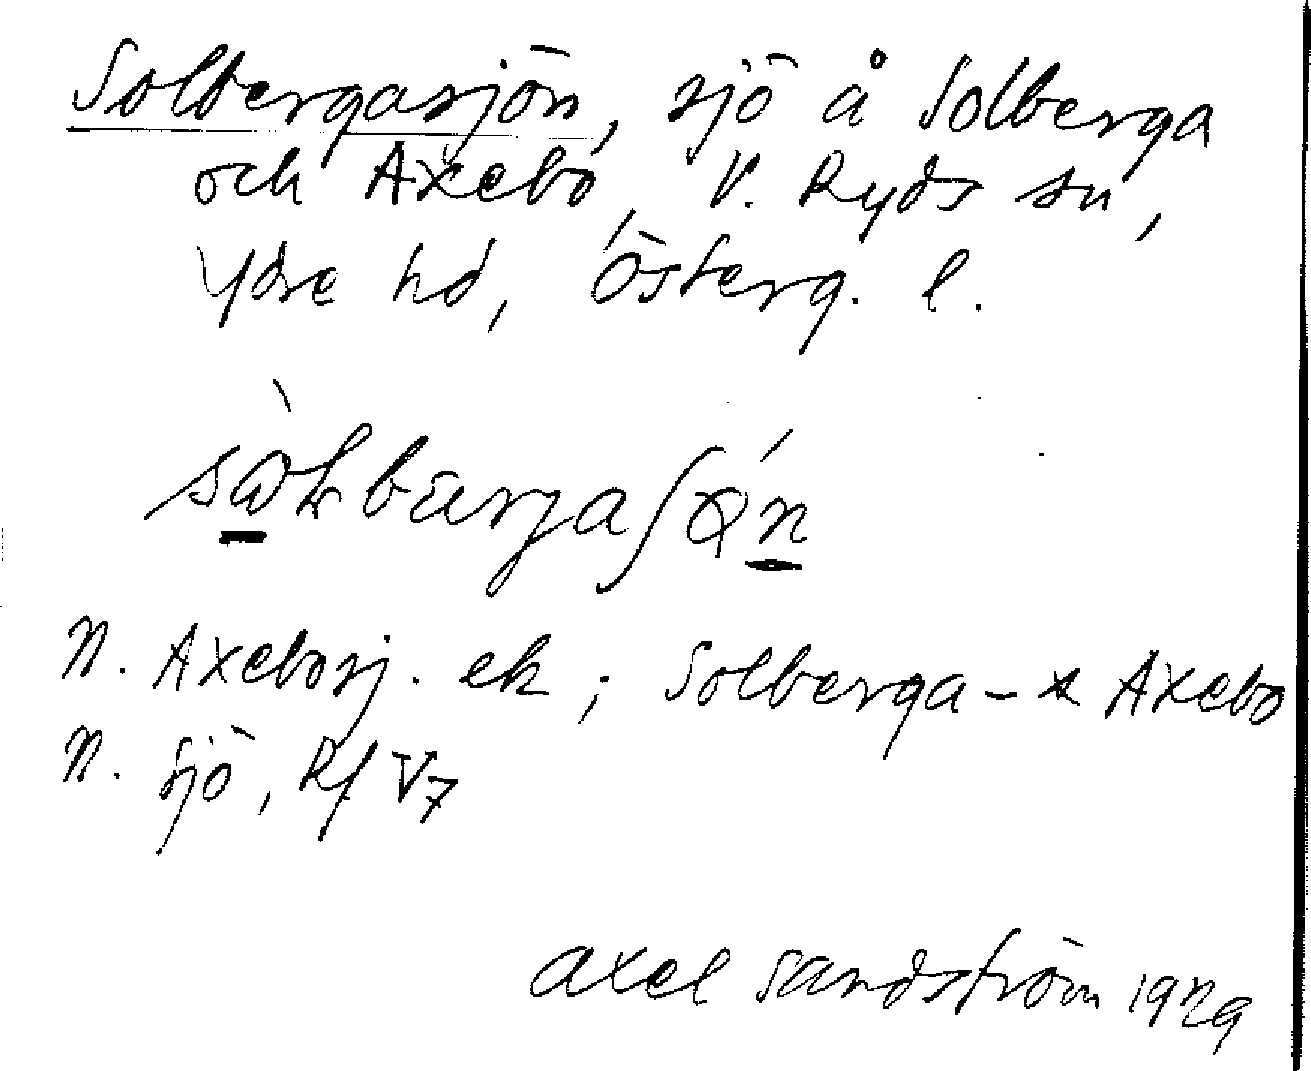 Solbergasjön, sjö å Solberga
och Axebo, V. Ryds sn,
Ydre hd, Österg. l.
N. Axebosj. ek; Solberga- Axebo
N. sjö, Rf V7
Axel Sandström 1929